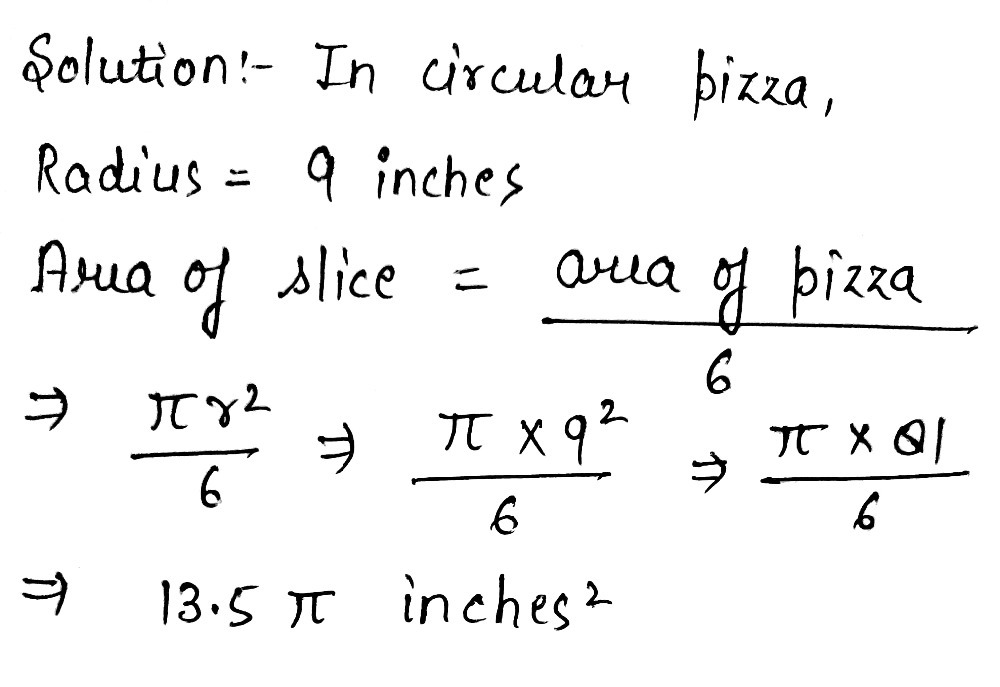 Solution:- In circular pizza,
Radius = 9 inches
Area of slice = area of pizza / 6
⇒ πr²/6 ⇒ π × 9²/6 ⇒ π × 81/6
⇒ 13.5 π inches²